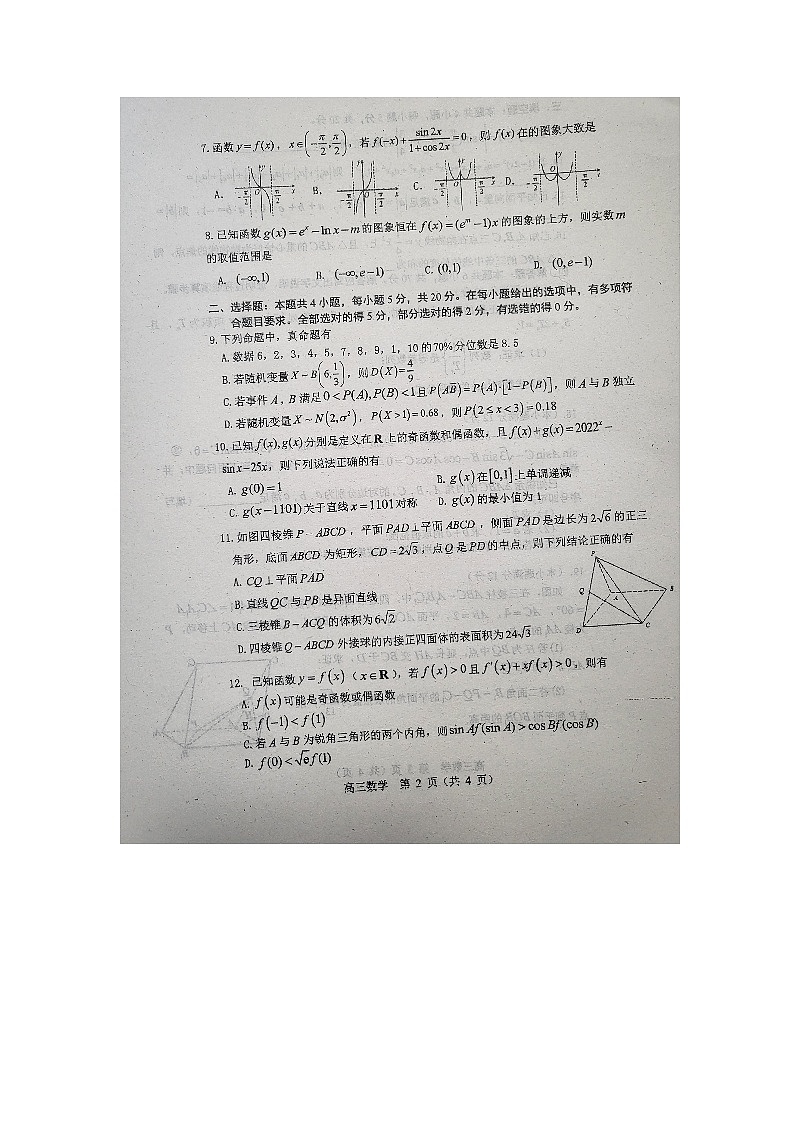 7.函数y=f(x)，x∈(-π/2,π/2)，若f(-x)+sin2x/(1+cos2x)=0，则f(x)在的图象大数是
A. B. C. D.
8.已知函数g(x)=eˣ-lnx-m的图象恒在f(x)=(eᵐ-1)x的图象的上方，则实数m
的取值范围是
A. (-∞,1) B. (-∞,e-1) C. (0,1) D. (0,e-1)
二、选择题：本题共4小题，每小题5分，共20分。在每小题给出的选项中，有多项符
合题目要求。全部选对的得5分，部分选对的得2分，有选错的得0分。
9.下列命题中，真命题有
A.数据6，2，3，4，5，7，8，9，1，10的70%分位数是8.5
B.若随机变量X~B(6,1/3)，则D(X)=4/9
C.若事件A,B满足0<P(A),P(B)<1且P(AB̄)=P(A)·[1-P(B)]，则A与B独立
D.若随机变量X~N(2,σ²)，P(X>1)=0.68，则P(2≤x<3)=0.18
10.已知f(x),g(x)分别是定义在R上的奇函数和偶函数，且f(x)+g(x)=2022ˣ-
sinx-25x，则下列说法正确的有
A. g(0)=1 B. g(x)在[0,1]上单调递减
C. g(x-1101)关于直线x=1101对称 D. g(x)的最小值为1
11.如图四棱锥P-ABCD，平面PAD⊥平面ABCD，侧面PAD是边长为2√6的正三
角形，底面ABCD为矩形，CD=2√3，点Q是PD的中点，则下列结论正确的有
A. CQ⊥平面PAD
B.直线QC与PB是异面直线
C.三棱锥B-ACQ的体积为6√2
D.四棱锥Q-ABCD外接球的内接正四面体的表面积为24√3
P
Q
A
B
D
C
12. 已知函数y=f(x)（x∈R），若f(x)>0且f'(x)+xf(x)>0，则有
A. f(x)可能是奇函数或偶函数
B. f(-1)<f(1)
C.若A与B为锐角三角形的两个内角，则sinAf(sinA)>cosBf(cosB)
D. f(0)<√ef(1)
高三数学 第2页（共4页）